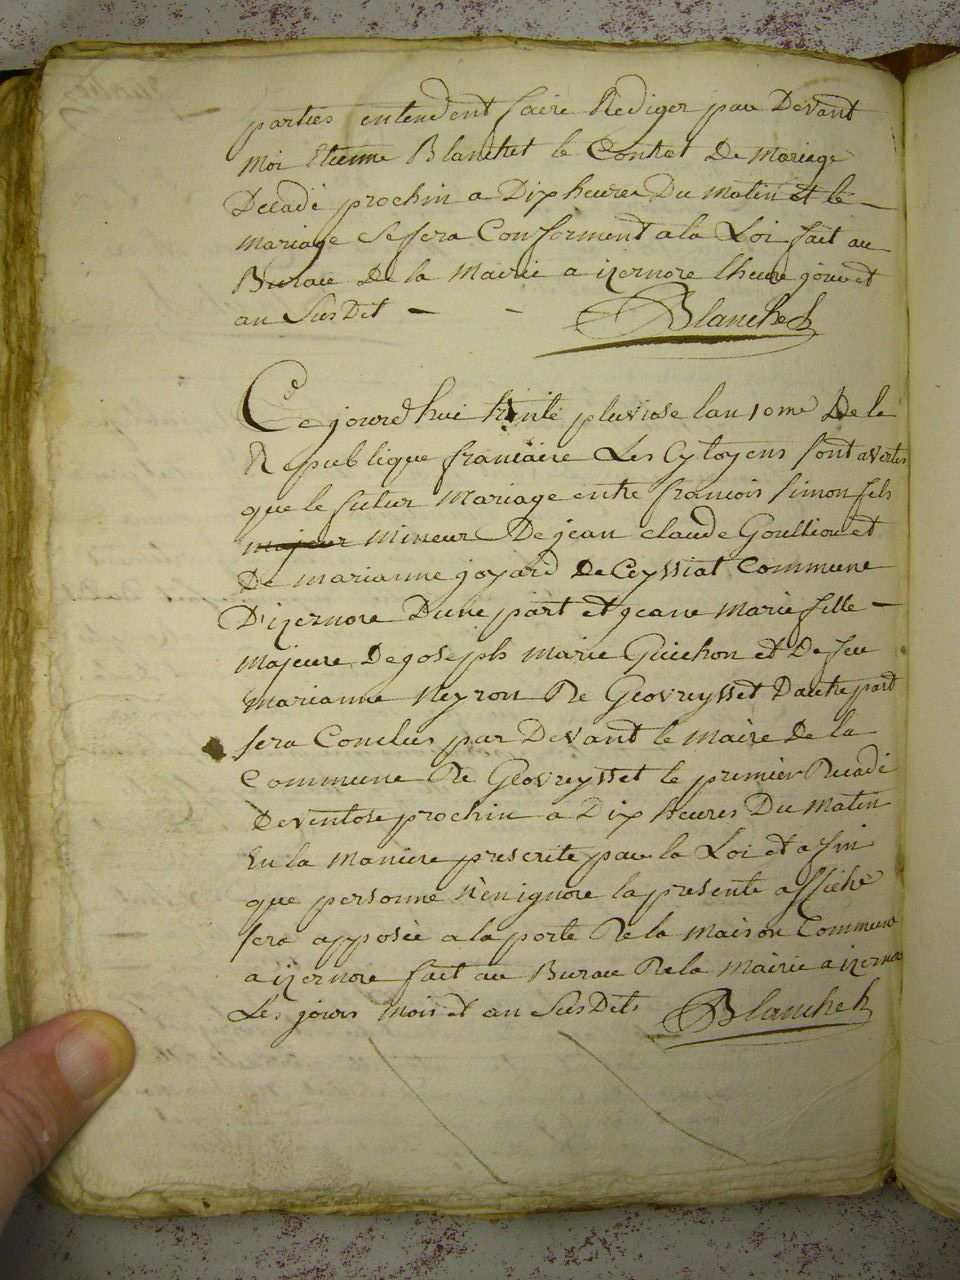 parties entendent faire Rediger par Devant
Moi Etienne Blanchet le Contrat De Mariage
Decadi prochin a Dix heures Du matin et le
mariage se fera Conforment a la Loi fait au
Bureau De la Mairie a izernore lheure jour et
an Sus Dit Blanchet
Ce jourd'hui trente pluviose lan 10me De la
Republique francaire Les Cytoyens sont avertis
que le futur Mariage entre francois Simon fils
majeur Mineur De jean claude Goullion et
De marianne joyard De Ceyssiat Commune
D'izernore Dune part et jeane Marie fille
Majeure De joseph Marie Guichon et De feu
Marianne Neyron De Geovreysset Dautre part
sera Conclus par Devant le Maire De la
Commune De Geovreysset le premier Decadi
De ventose prochin a Dix Heures Du Matin
En la Maniere prescrite par la Loi et afin
que personne N'en ignore la presente affiche
sera apposée a la porte De la Maison Commune
a izernore fait au Bureau De la Mairie a izernore
Les jours Mois et an Sus Dits Blanchet